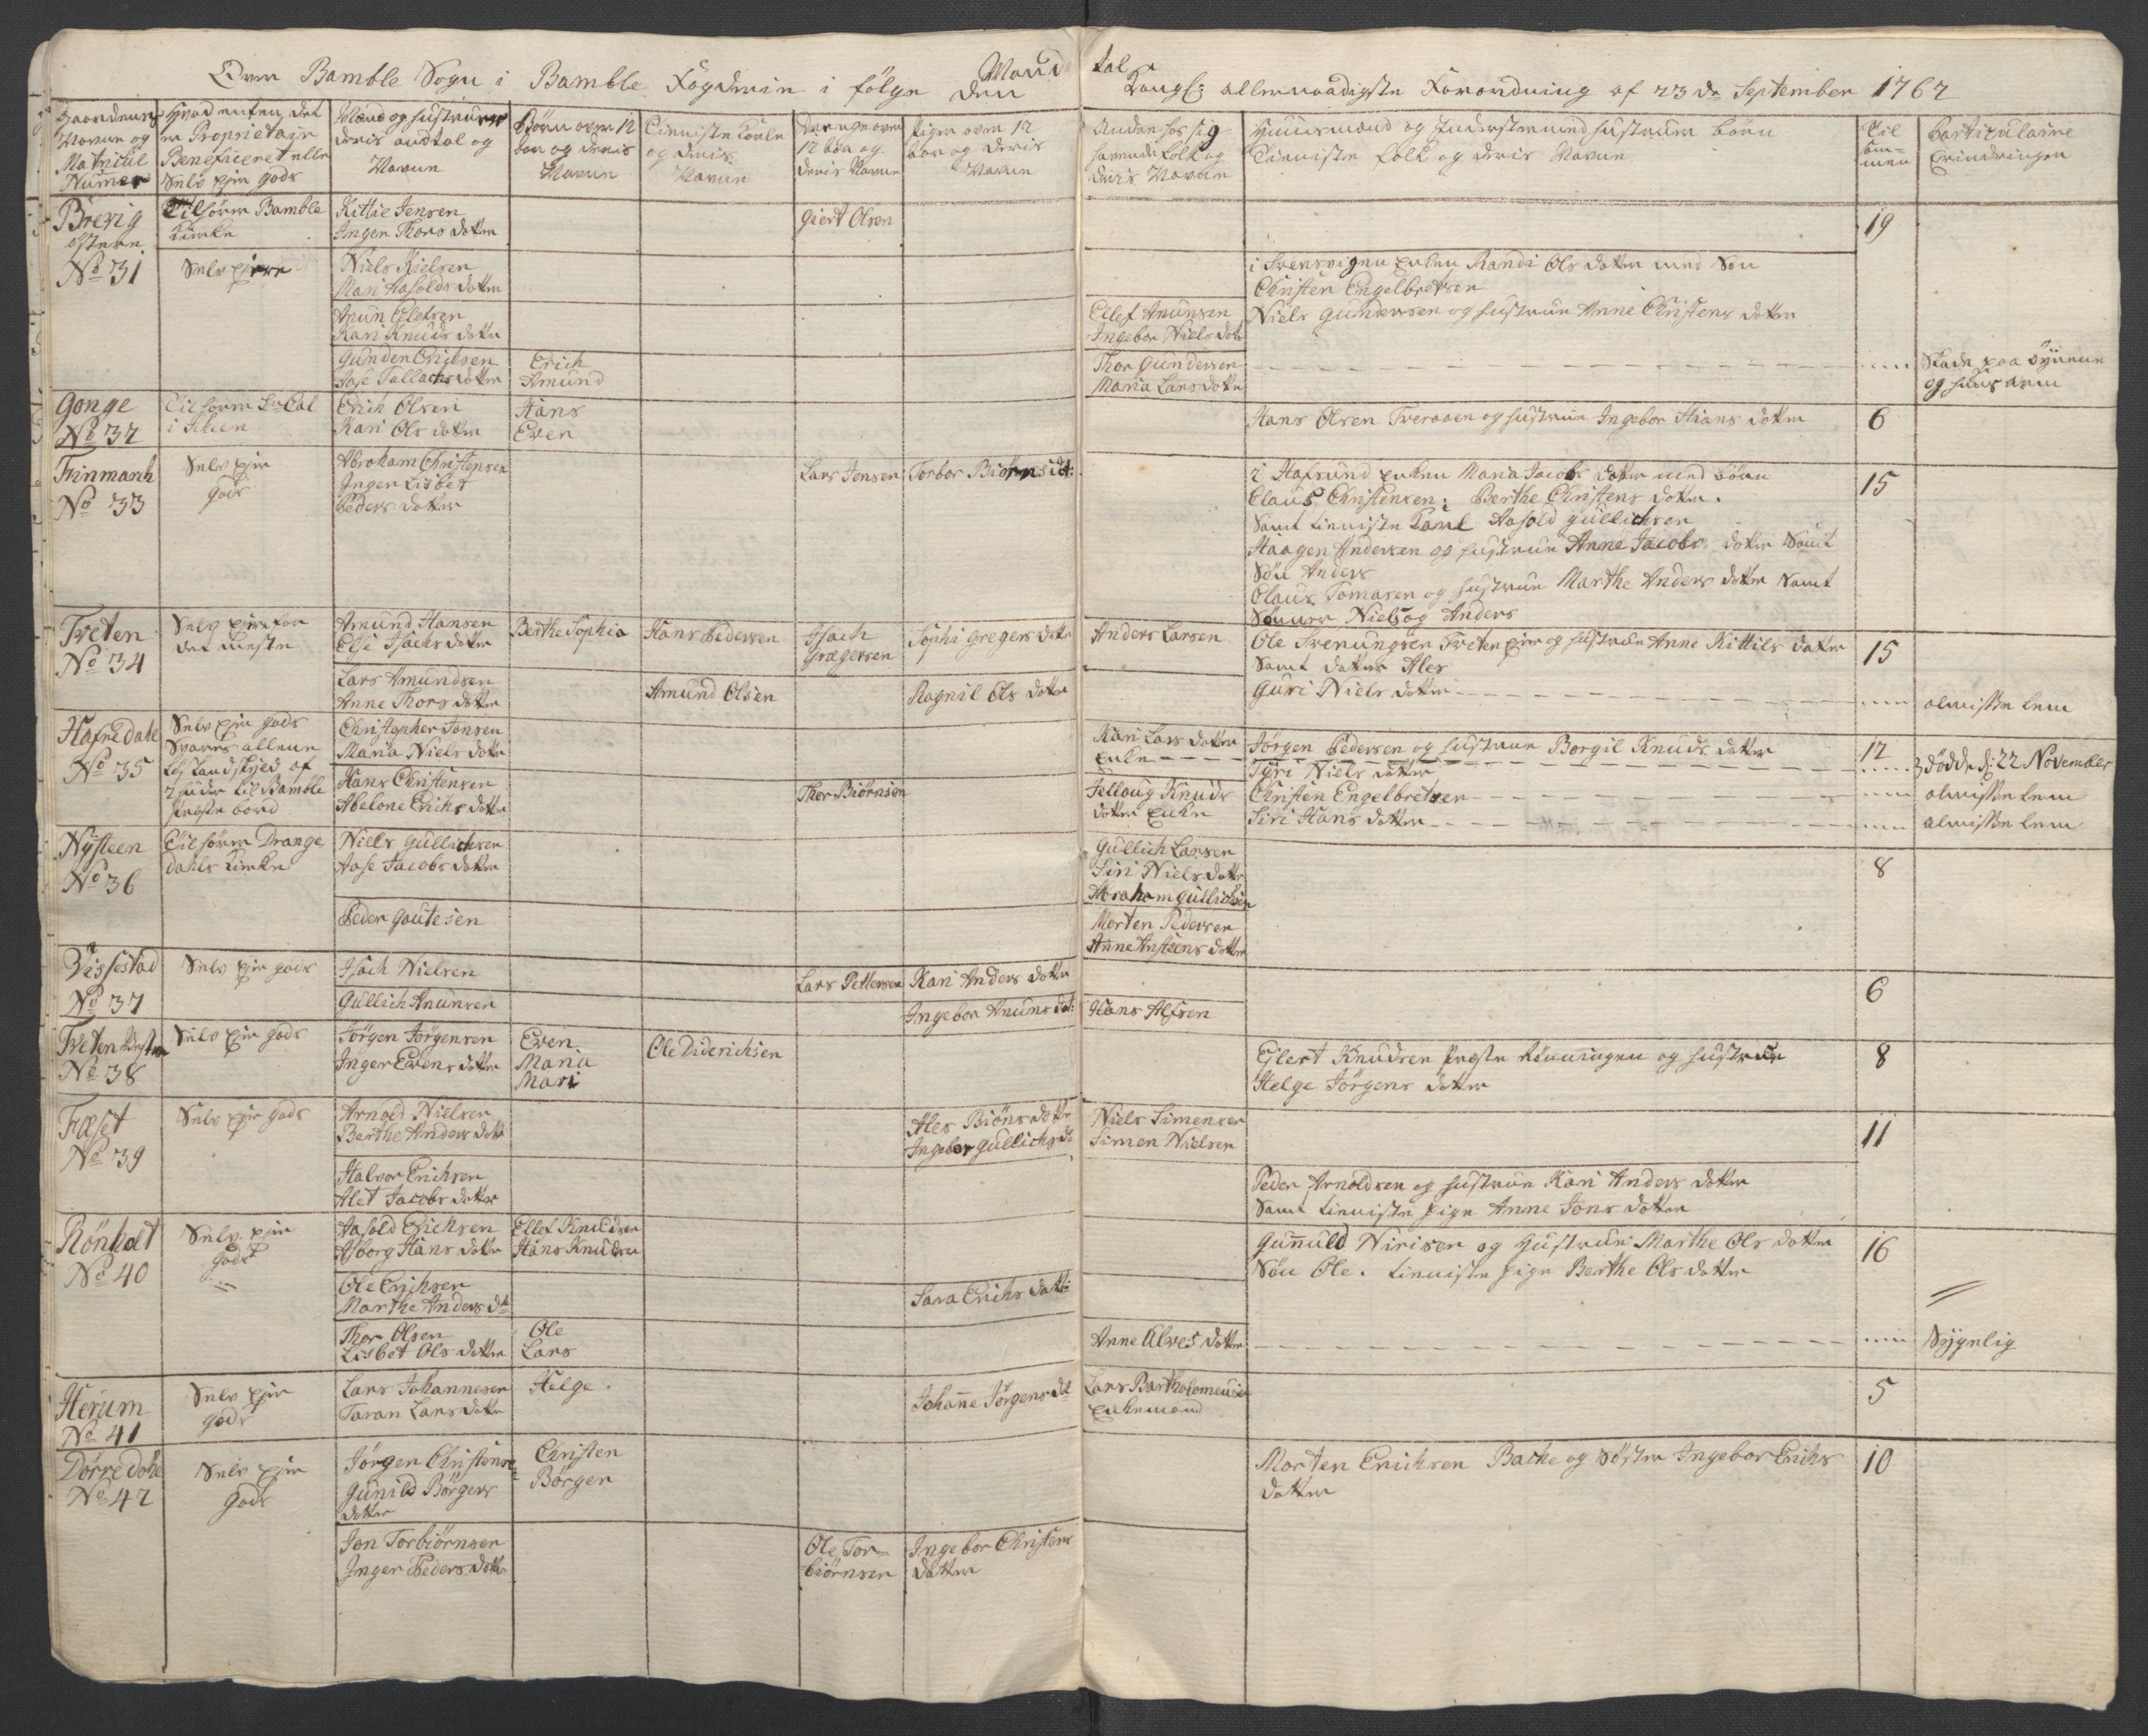 Mandtal
Over Bamble Sogn i Bamble Fogderie i følge den Kongl: allernaadigste Forordning af 23de September 1762
Gaardenes Navne og Matricul Numer
Hvad enten det er Proprietair Beneficeret eller Selv Ejer gods
Mænd og Hustruer deris andtal og Navne
Børn over 12 Aar og deris Navne
Tieniste Karle og deris Navne
Drenge over 12 Aar og deris Navne
Piger over 12 Aar og deris Navne
Anden hos sig havende Folk og deris Navne
Huusmænd og Inderster med Hustruer Børn Tieniste Folk og deris Navne
Til sam=men
Particulaire Erindringer
Brevig østere No 31
Tilhører Bamble Kirke
Kittil Jensen
Inger Thors dotter
Giert Olsen
19
Selv Ejere
Niels Nielsen
Mari Aasolds dotter
i Svensvigen Enken Randi Ols dotter med Søn
Christen Engelbretsen
Anun Eilefsen
Kari Knuds dotter
Eilef Anunsen
Ingebor Niels dotr
Niels Gundersen og Hustrue Anne Christens dotter
Gunder Erichsen
Aase Tallachs dotter
Erich
Amund
Thor Gundersen
Maria Lars dotter
Skade paa Øynene
og hans arm
Gonge No 32
i Scheen
Erich Olsen
Kari Ols dotter
Hans
Even
Hans Olsen Tveraaen og Hustrue Ingebor Hans dotter
6
Finmarch No 33
Selv Ejer Gods
Abraham Christensen
Inger Lisbet
Peders dotter
Lars Jensen
Torbor Biørns dt:
i Hafsund Enken Maria Jacobs dotter med Børn
Claus Christensen. Berthe Christens dotter.
Samt tieniste Karl Aasold Gullichsen
Haagen Andersen og Hustrue Anne Jacobs dotter Samt
Søn Anders
Claus Tomasen og Hustrue Marthe Anders dotter Samt
Sønner Niels og Anders
15
Tveten No 34
Selv Ejer for det meste
Amund Hansen
Else Isachs dotter
Berthe Sophia
Hans Pedersen
Isach Grægersen
Sophi Gregers dotr
Anders Larsen
Ole Svenungsen Tveten Ejer og Hustrue Anne Kittils dotter
Samt dotter Ales
15
Lars Amundsen
Anne Thors dotter
Amund Olsen
Ragnil Ols dotter
Guri Niels dotter
almisse lem
Hafredahl No 35
Selv Ejer gods Svarer allene Landskyld af 2 huder til Bamble Præste bord
Christopher Jensen
Maria Niels dotter
Kari Lars dotter
Enke
Jørgen Pedersen og Hustrue Borgil Knuds dotter
12
Siri Niels dotter
døde d: 22 November
Hans Christensen
Abelone Erichs dotter
Thor Biørnsen
Jelloug Knuds
dotter Enke
Christen Engelbretsen
almisse lem
Siri Hans dotter
almisse lem
Nysteen No 36
Tilhører Drangedahls Kirke
Niels Gullichsen
Aase Jacobs dotter
Gullich Larsen
Siri Niels dotter
Abraham Gullichsen
8
Peder Goutesen
Morten Pedersen
Anne Ansteens dotter
Vissestad No 37
Selv Ejer gods
Isach Nielsen
Lars Pettersen
Kari Anders dotter
6
Gullich Anunsen
Ingebor Anuns dot:
Hans Alfsen
Tveten Vestre No 38
Selv Ejer Gods
Jørgen Jørgensen
Inger Evens dotter
Even
Maria
Mari
Ole Diderichsen
Ejlert Knudsen Præste Rønningen og Hustrue
Helge Jørgens dotter
8
Fæset No 39
Selv Ejer gods
Arnold Nielsen
Berthe Anders dotr
Ales Biøns dotter
Ingebor Gullichs dt
Niels Simensen
Simen Nielsen
11
Halvor Erichsen
Alet Jacobs dotter
Peder Arnoldsen og Hustrue Kari Anders dotter
Samt tieniste pige Anne Jons dotter
Rönholt No 40
Selv Ejer Gods
Aasold Erichsen
Asborg Hans dotter
Ellef Knudsen
Hans Knudsen
Gunuld Nirisen og Hustrue Marthe Ols dotter
Søn Ole. tieniste pige Berthe Ols dotter
16
Ole Erichsen
Marthe Anders dt
Sara Erichs dotr:
Thor Olsen
Lisbet Ols dotter
Ole
Lars
Anne Alves dotter
Sygelig
Herum No 41
Selv Ejer gods
Lars Johannesen
Taran Lars dotter
Helge
Johane Jørgens dt
Lars Bartholomeusen
Enkemand
5
Dørredohl No 42
Selv Ejer Gods
Jørgen Christensen
Gunild Børgers
dotter
Christen
Børger
Morten Erichsen Bakke og Søster Ingebor Erichs
dotter
10
Jon Torbiørnsen
Inger Peders dotter
Ole Tor=
biørnsen
Ingebor Christens
dotter